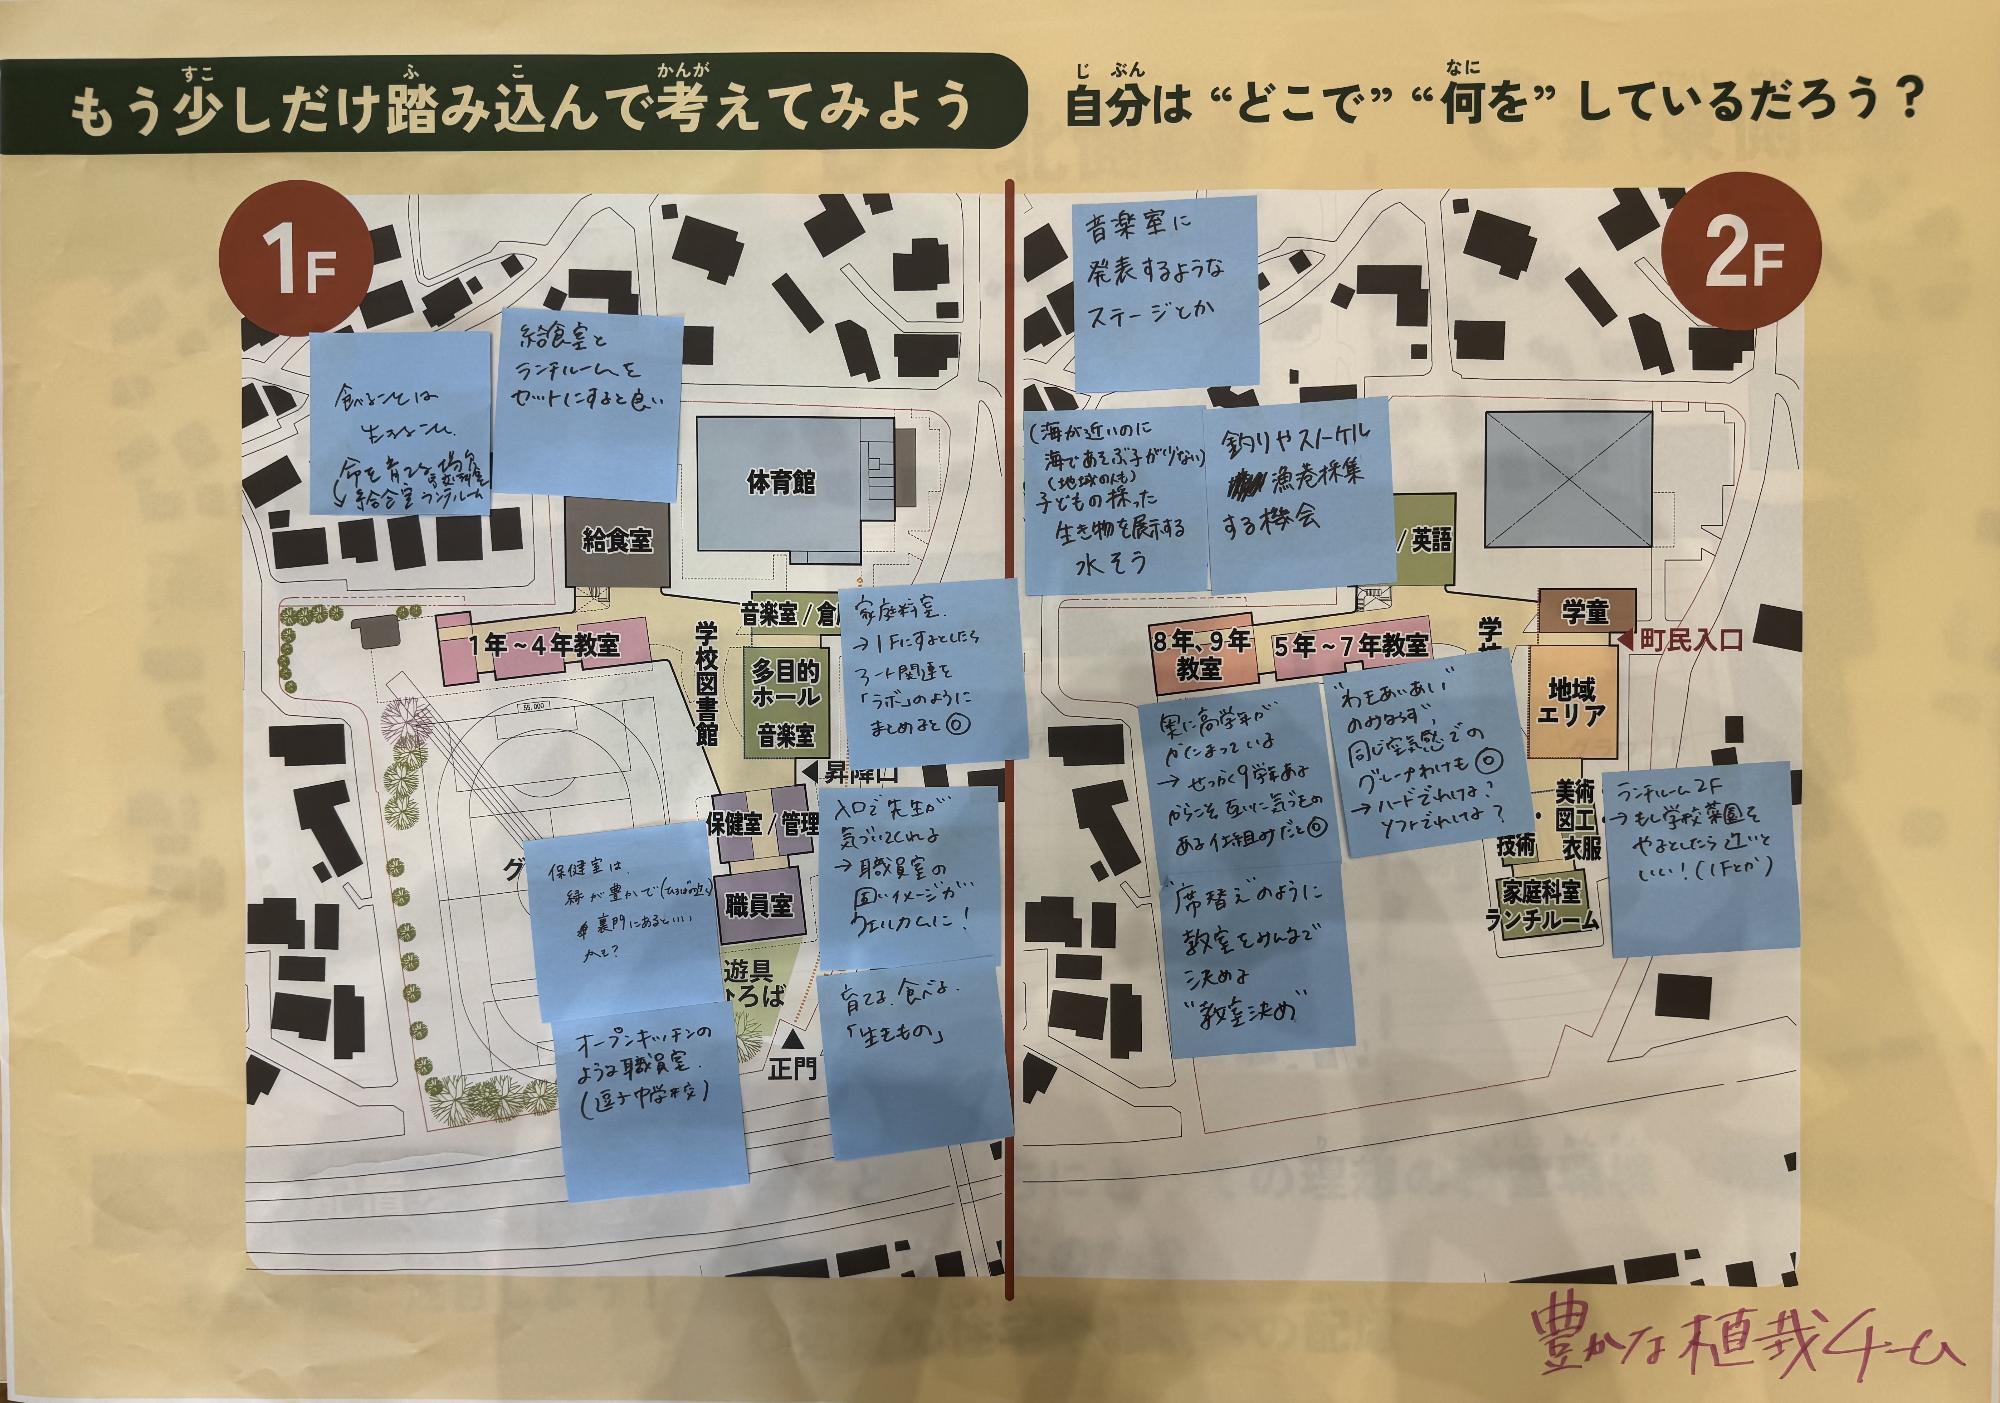 もう少しだけ踏み込んで考えてみよう
すこ ふ こ かんが
自分は“どこで”“何を”しているだろう？
じ ぶん なに
1F
食べることは
生きること
命を育てる場
給食室 ランチルーム
給食室と
ランチルームを
セットにすると良い
体育館
給食室
音楽室 / 倉
1年~4年教室
学校図書館
多目的
ホール
音楽室
昇降口
保健室 / 管理
職員室
遊具
ひろば
正門
グ
55,000
家庭科室
→1Fにするとしたら
アート関連を
「ラボ」のように
まとめると◎
入口で先生が
気づいてくれる
→職員室の
固いイメージが
ウェルカムに!
保健室は、
緑が豊かで(ひろばの近く)
裏門にあるといい
かも?
オープンキッチンの
ような職員室.
(逗子中学校)
育てる.食べる.
「生きもの」
2F
音楽室に
発表するような
ステージとか
(海が近いのに
海であそぶ子が少ない)
(地域の人も)
子どもの採った
生き物を展示する
水そう
釣りやスノーケル
漁巻採集
する機会
/ 英語
学童
町民入口
8年、9年
教室
5年~7年教室
学校
地域
エリア
美術
・図工
技術 衣服
家庭科室
ランチルーム
奥に高学年が
かたまっている
→せっかく9学年ある
からこそ互いに気づきの
ある仕組みだと◎
“わきあいあい”
のみならず、
同じ空気感での
グループわけも◎
→ハードでわける?
ソフトでわける?
ランチルーム2F
→もし学校菜園を
やるとしたら近いと
いい!(1Fとか)
“席替え”のように
教室をみんなで
決める
“教室決め”
豊かな植栽チーム